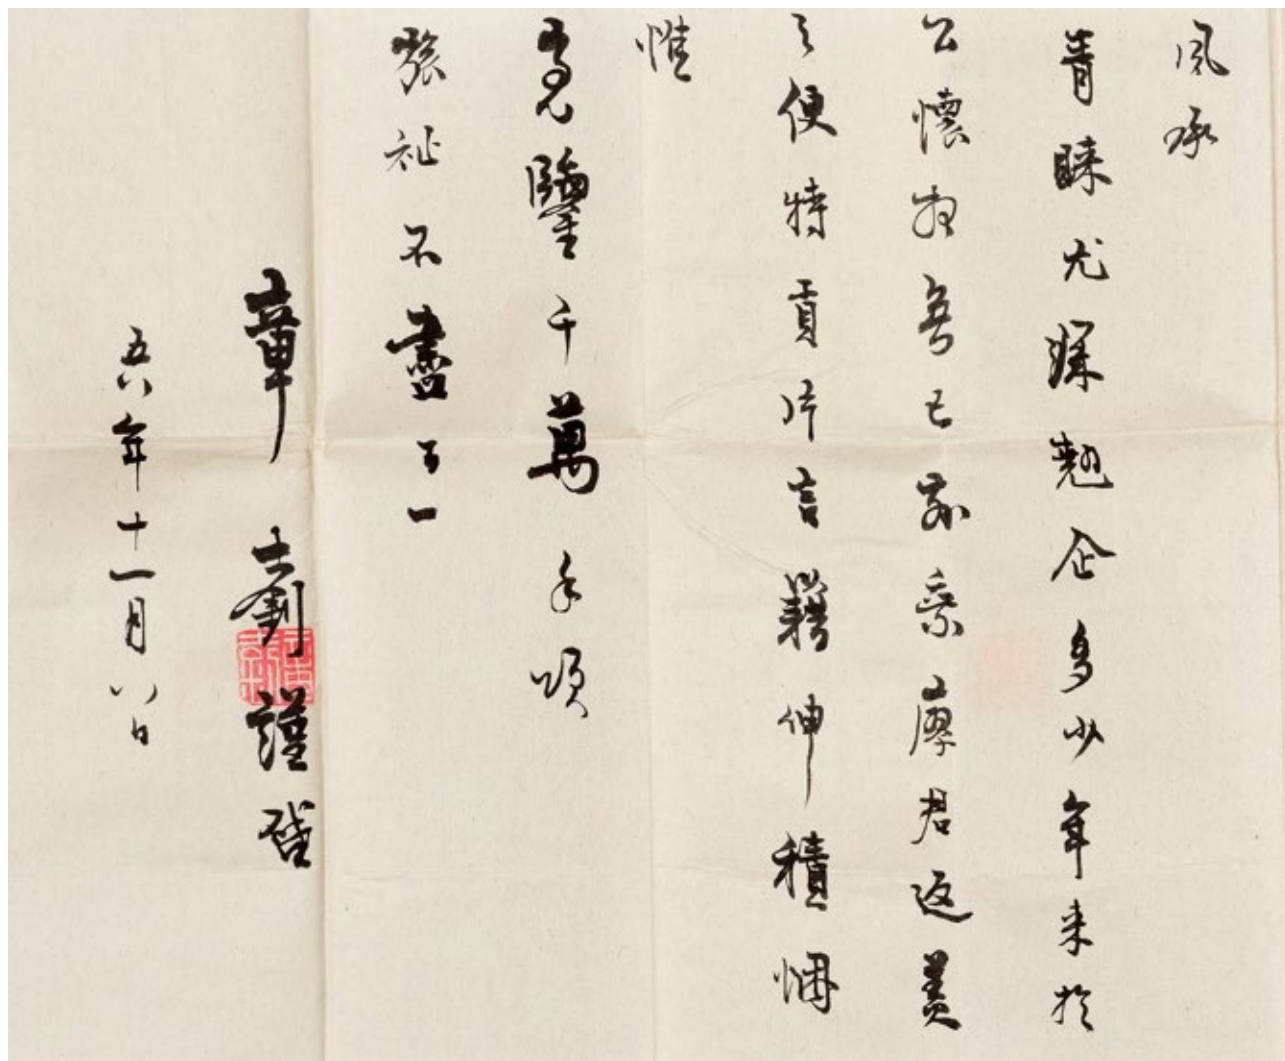 夙承
青睞尤深翹企多少年来於
公懷想無已茲乘廖君返美
之便特貢片言藉伸積悃
惟
亮鑒千萬手頌
發祉不盡一一
章士釗謹啓
五六年十一月八日